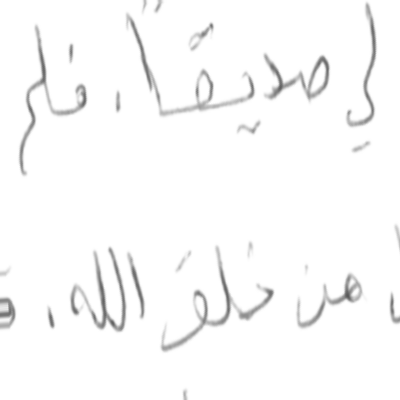 لي صديقاً، فلم
من خلق الله،